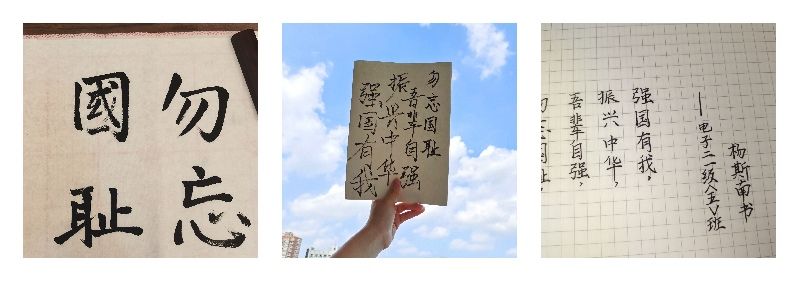 勿忘
國耻
勿忘国耻
吾辈自强
振兴中华
强国有我
勿忘国耻，
吾辈自强，
振兴中华，
强国有我，
——电子二一级<五>班
杨斯南书